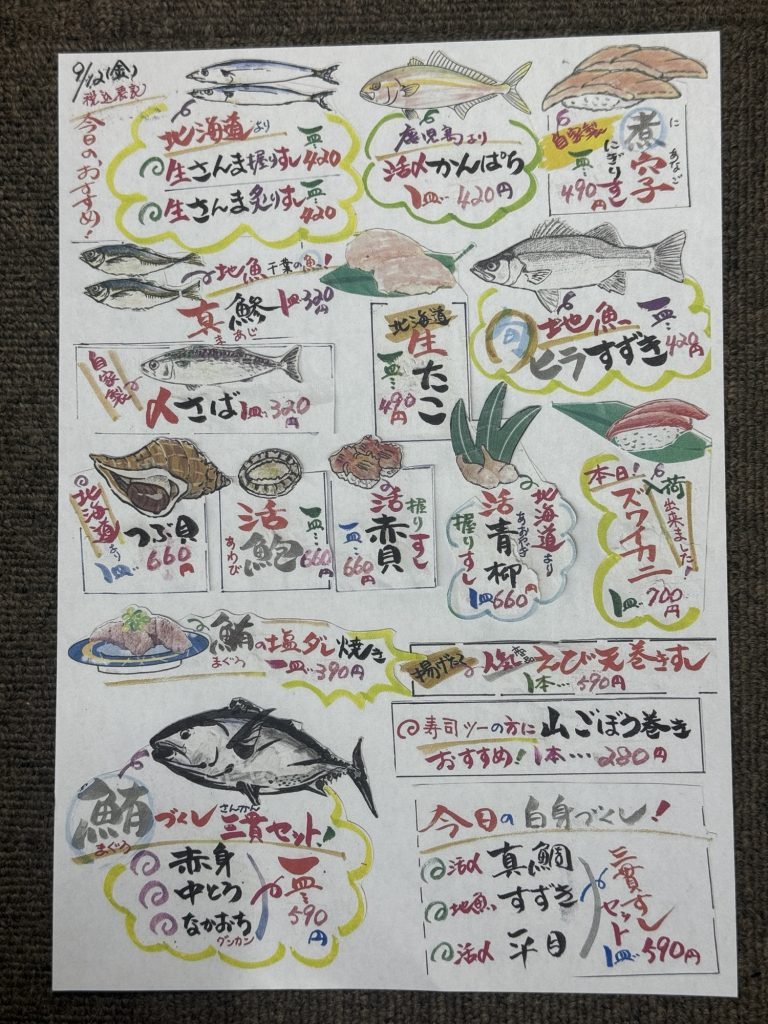 9/12(金)
税込表記
今日の、おすすめ!
北海道より
生さんま握りすし 一皿… 420
生さんま炙りすし 一皿… 420
鹿児島より
活〆かんぱち
1皿… 420円
自家製
煮穴子
に あなご
にぎりすし
一皿… 490円
地魚 千葉の魚!
真鯵 1皿 320円
ま あじ
自家製
〆さば 1皿… 320円
北海道
生たこ
一皿… 490円
旬 地魚
ヒラすずき
一皿… 420円
北海道より
つぶ貝
1皿 660円
活鮑
あわび
一皿… 660円
活赤貝
握りすし
一皿… 660円
北海道より
活青柳
あおやぎ
握りすし
1皿 660円
本日!入荷出来ました!
ズワイカニ
1皿… 700円
鮪の塩ダレ焼き
まぐろ
一皿… 390円
揚げたて 人気 えび天巻きすし
1本… 590円
寿司ツーの方に 山ごぼう巻き
おすすめ! 1本… 280円
鮪づくし 三貫セット!
まぐろ さんかん
赤身
中とろ
なかおち
グンカン
一皿… 590円
今日の白身づくし!
活〆 真鯛
地魚 すずき
活〆 平目
三貫すしセット
1皿… 590円